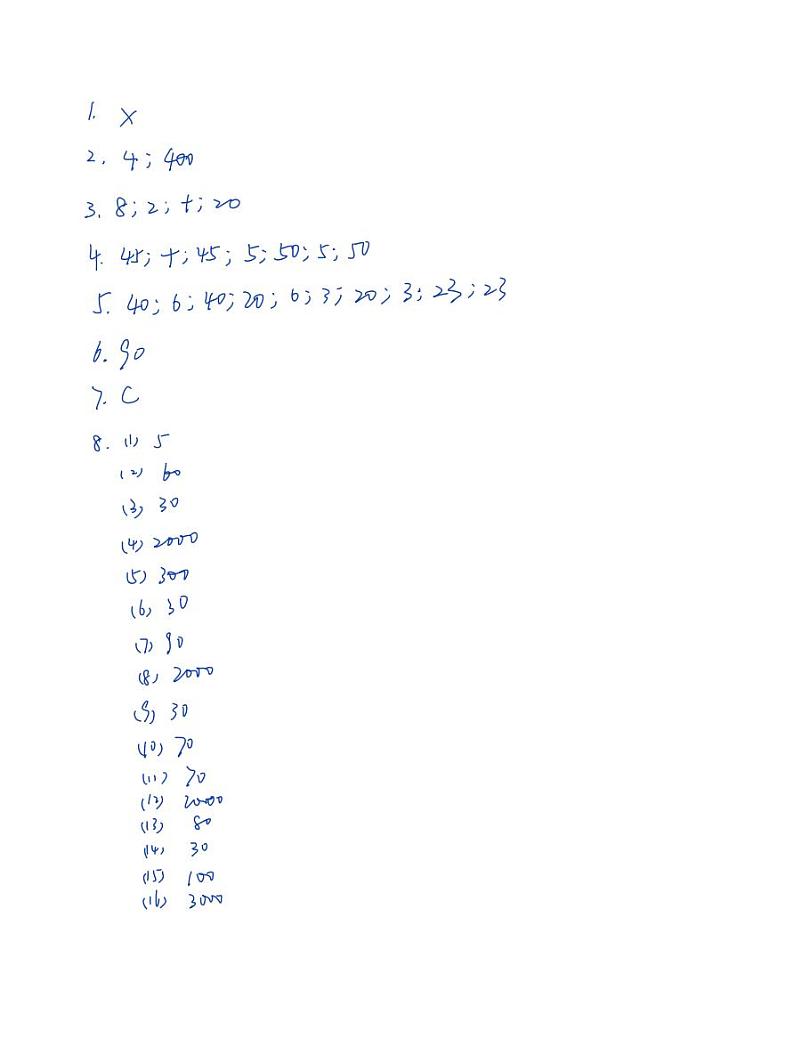 1. ×
2. 4; 400
3. 8; 2; 十; 20
4. 45; 十; 45; 5; 50; 5; 50
5. 40; 6; 40; 20; 6; 3; 20; 3; 23; 23
6. 90
7. C
8. (1) 5
(2) 60
(3) 30
(4) 2000
(5) 300
(6) 30
(7) 90
(8) 2000
(9) 30
(10) 70
(11) 70
(12) 2000
(13) 80
(14) 30
(15) 100
(16) 3000